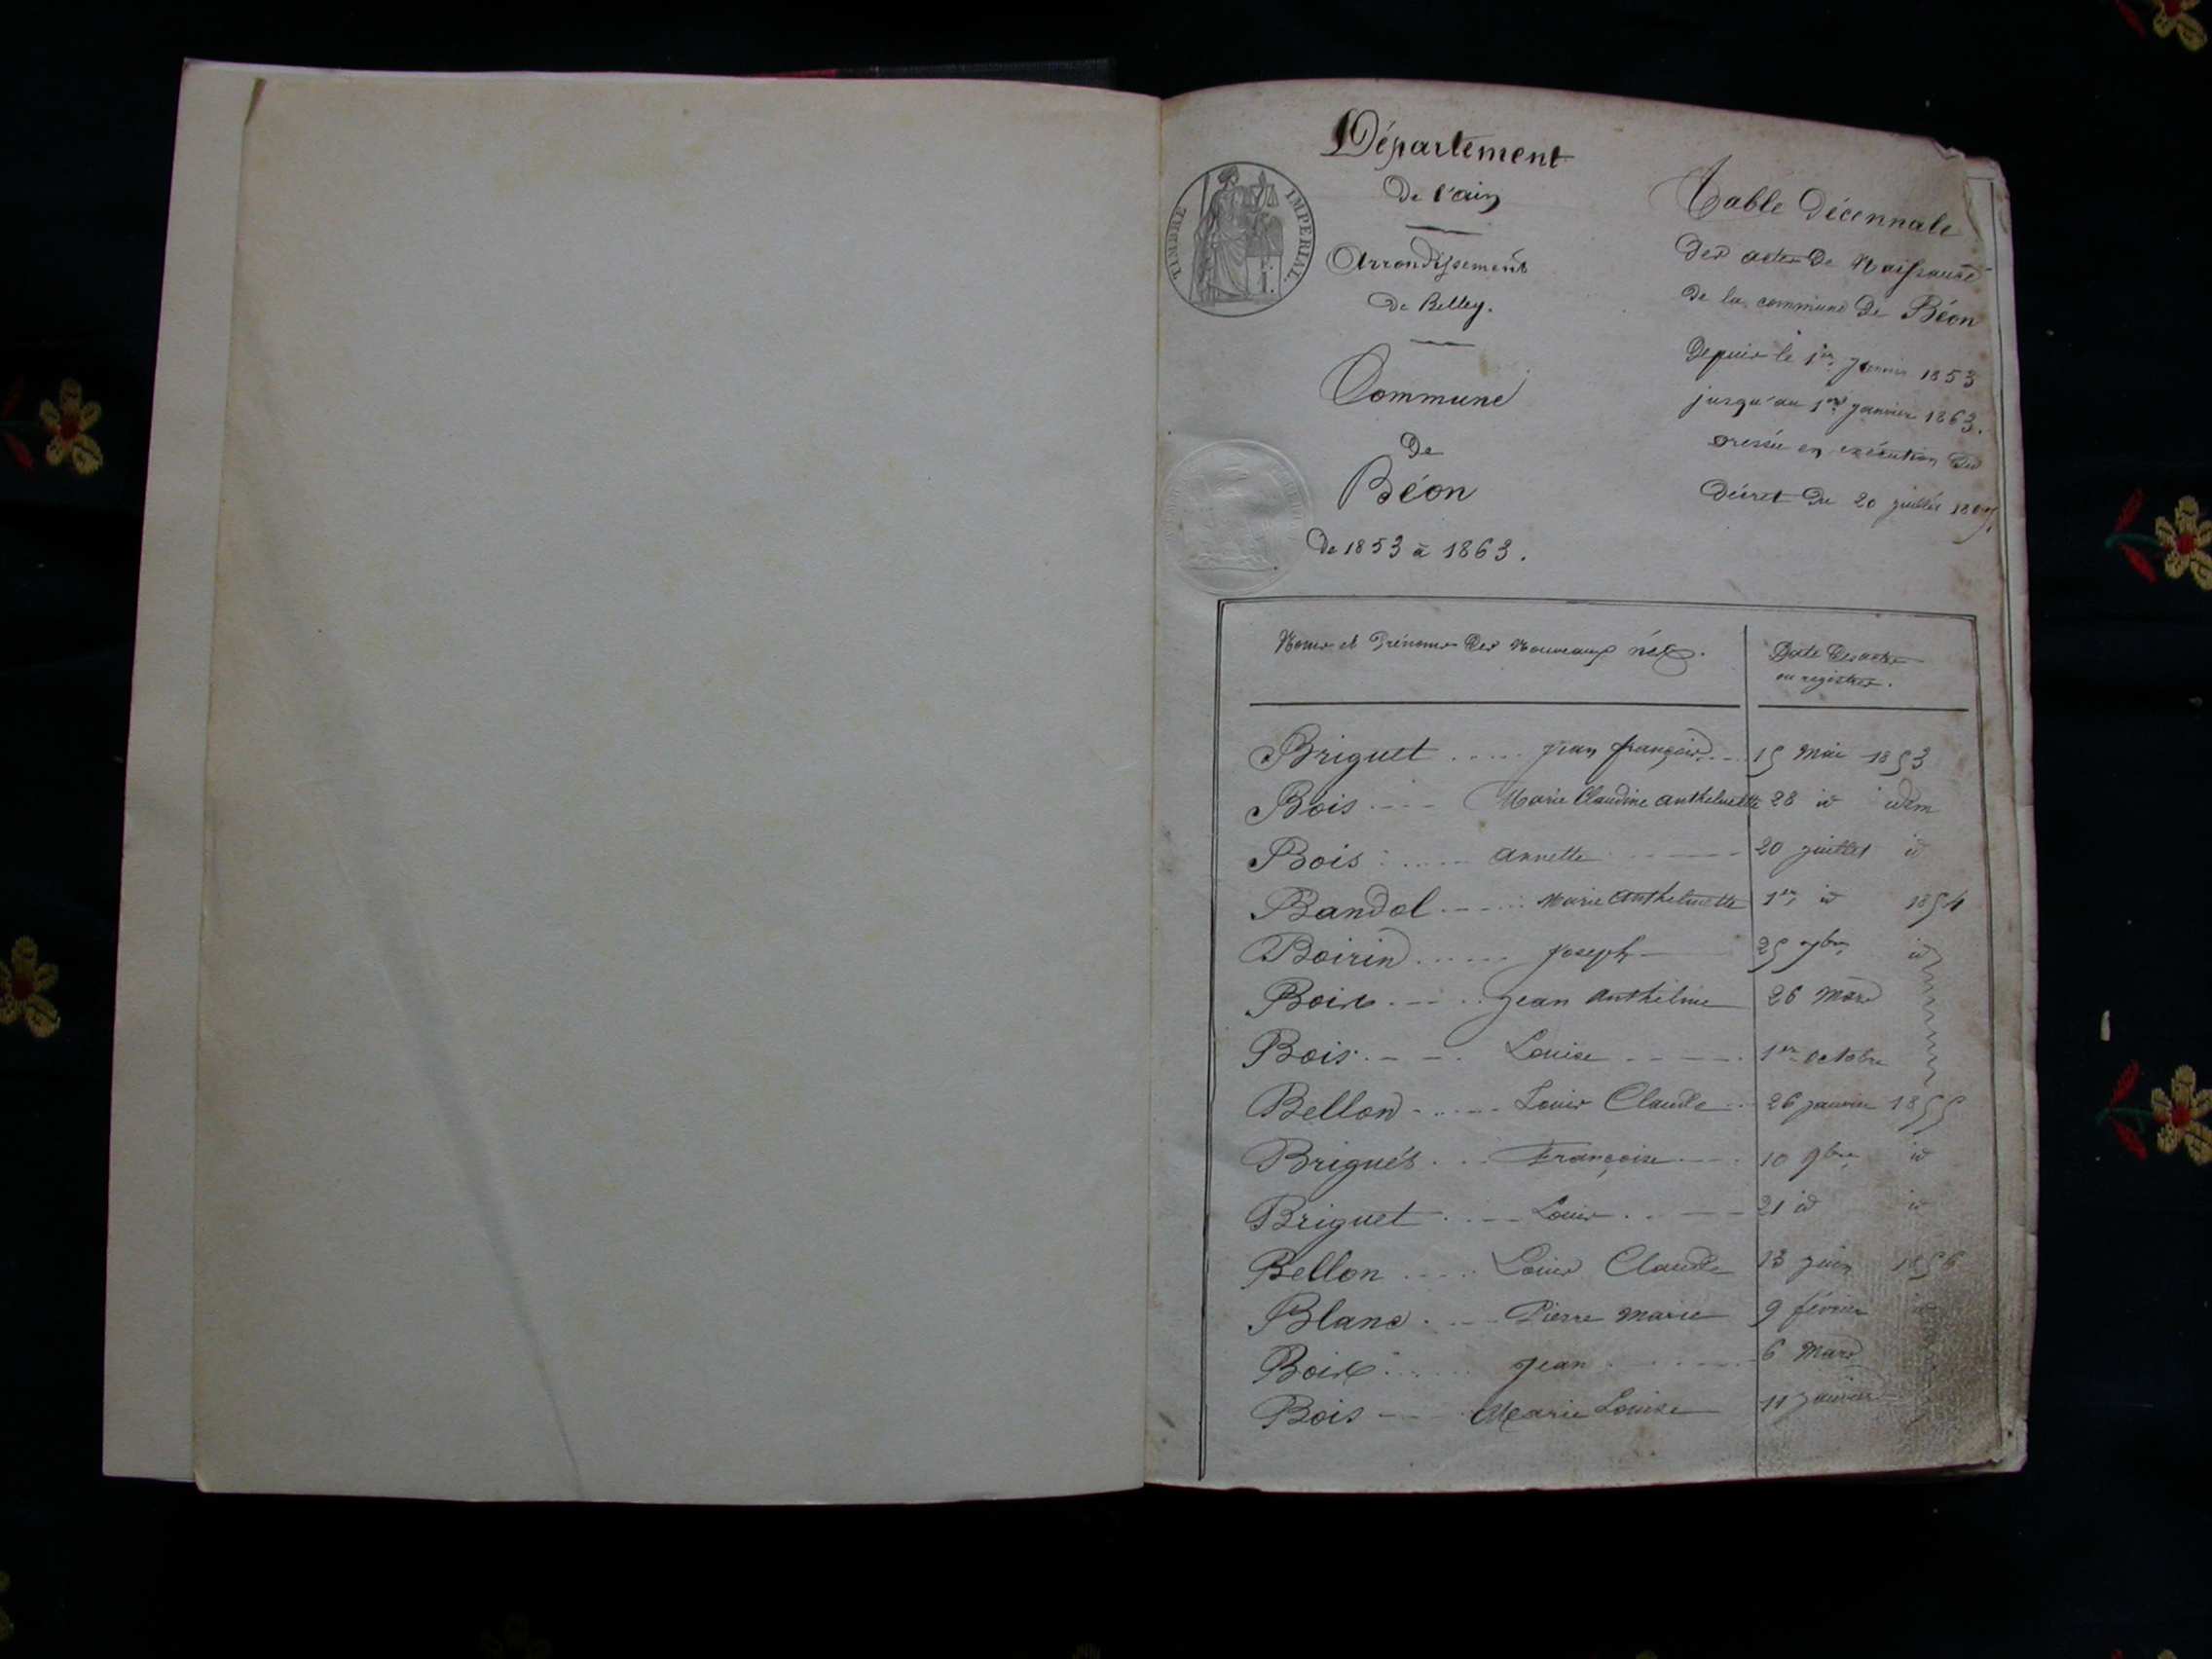 Département
De l'ain
Arrondissement
De Belley.
Commune
De
Béon
De 1853 à 1863.
TIMBRE IMPERIAL
Table Décennale
Des actes De Naissance
De la commune De Béon
Depuis le 1er Janvier 1853
jusqu'au 1er janvier 1863.
Dressée en exécution Du
Décret Du 20 juillet 1807.
Noms et Prénoms Des Nouveaux nés.
Date Des actes
ou registres.
Briguet ..... Jean françois ... 15 Mai 1853
Bois .... Marie Claudine anthelmette 28 id idem
Bois ..... annette 20 juillet id
Bandol ..... Marie anthelmette 1er id 1854
Boirin ..... Joseph 25 id
Bois ... Jean anthelme 26 Mars
Bois ... Louise ..... 1er octobre
Bellon ..... Louis Claude .. 26 janvier 1855
Briguet ... Françoise ... 10 9bre id
Briguet .... Louis ..... 21 id id
Bellon .... Louis Claude 13 juin 1856
Blanc .... Pierre Marie 9 février id
Bois ..... Jean ..... 6 Mars
Bois ... Marie Louise 11 janvier